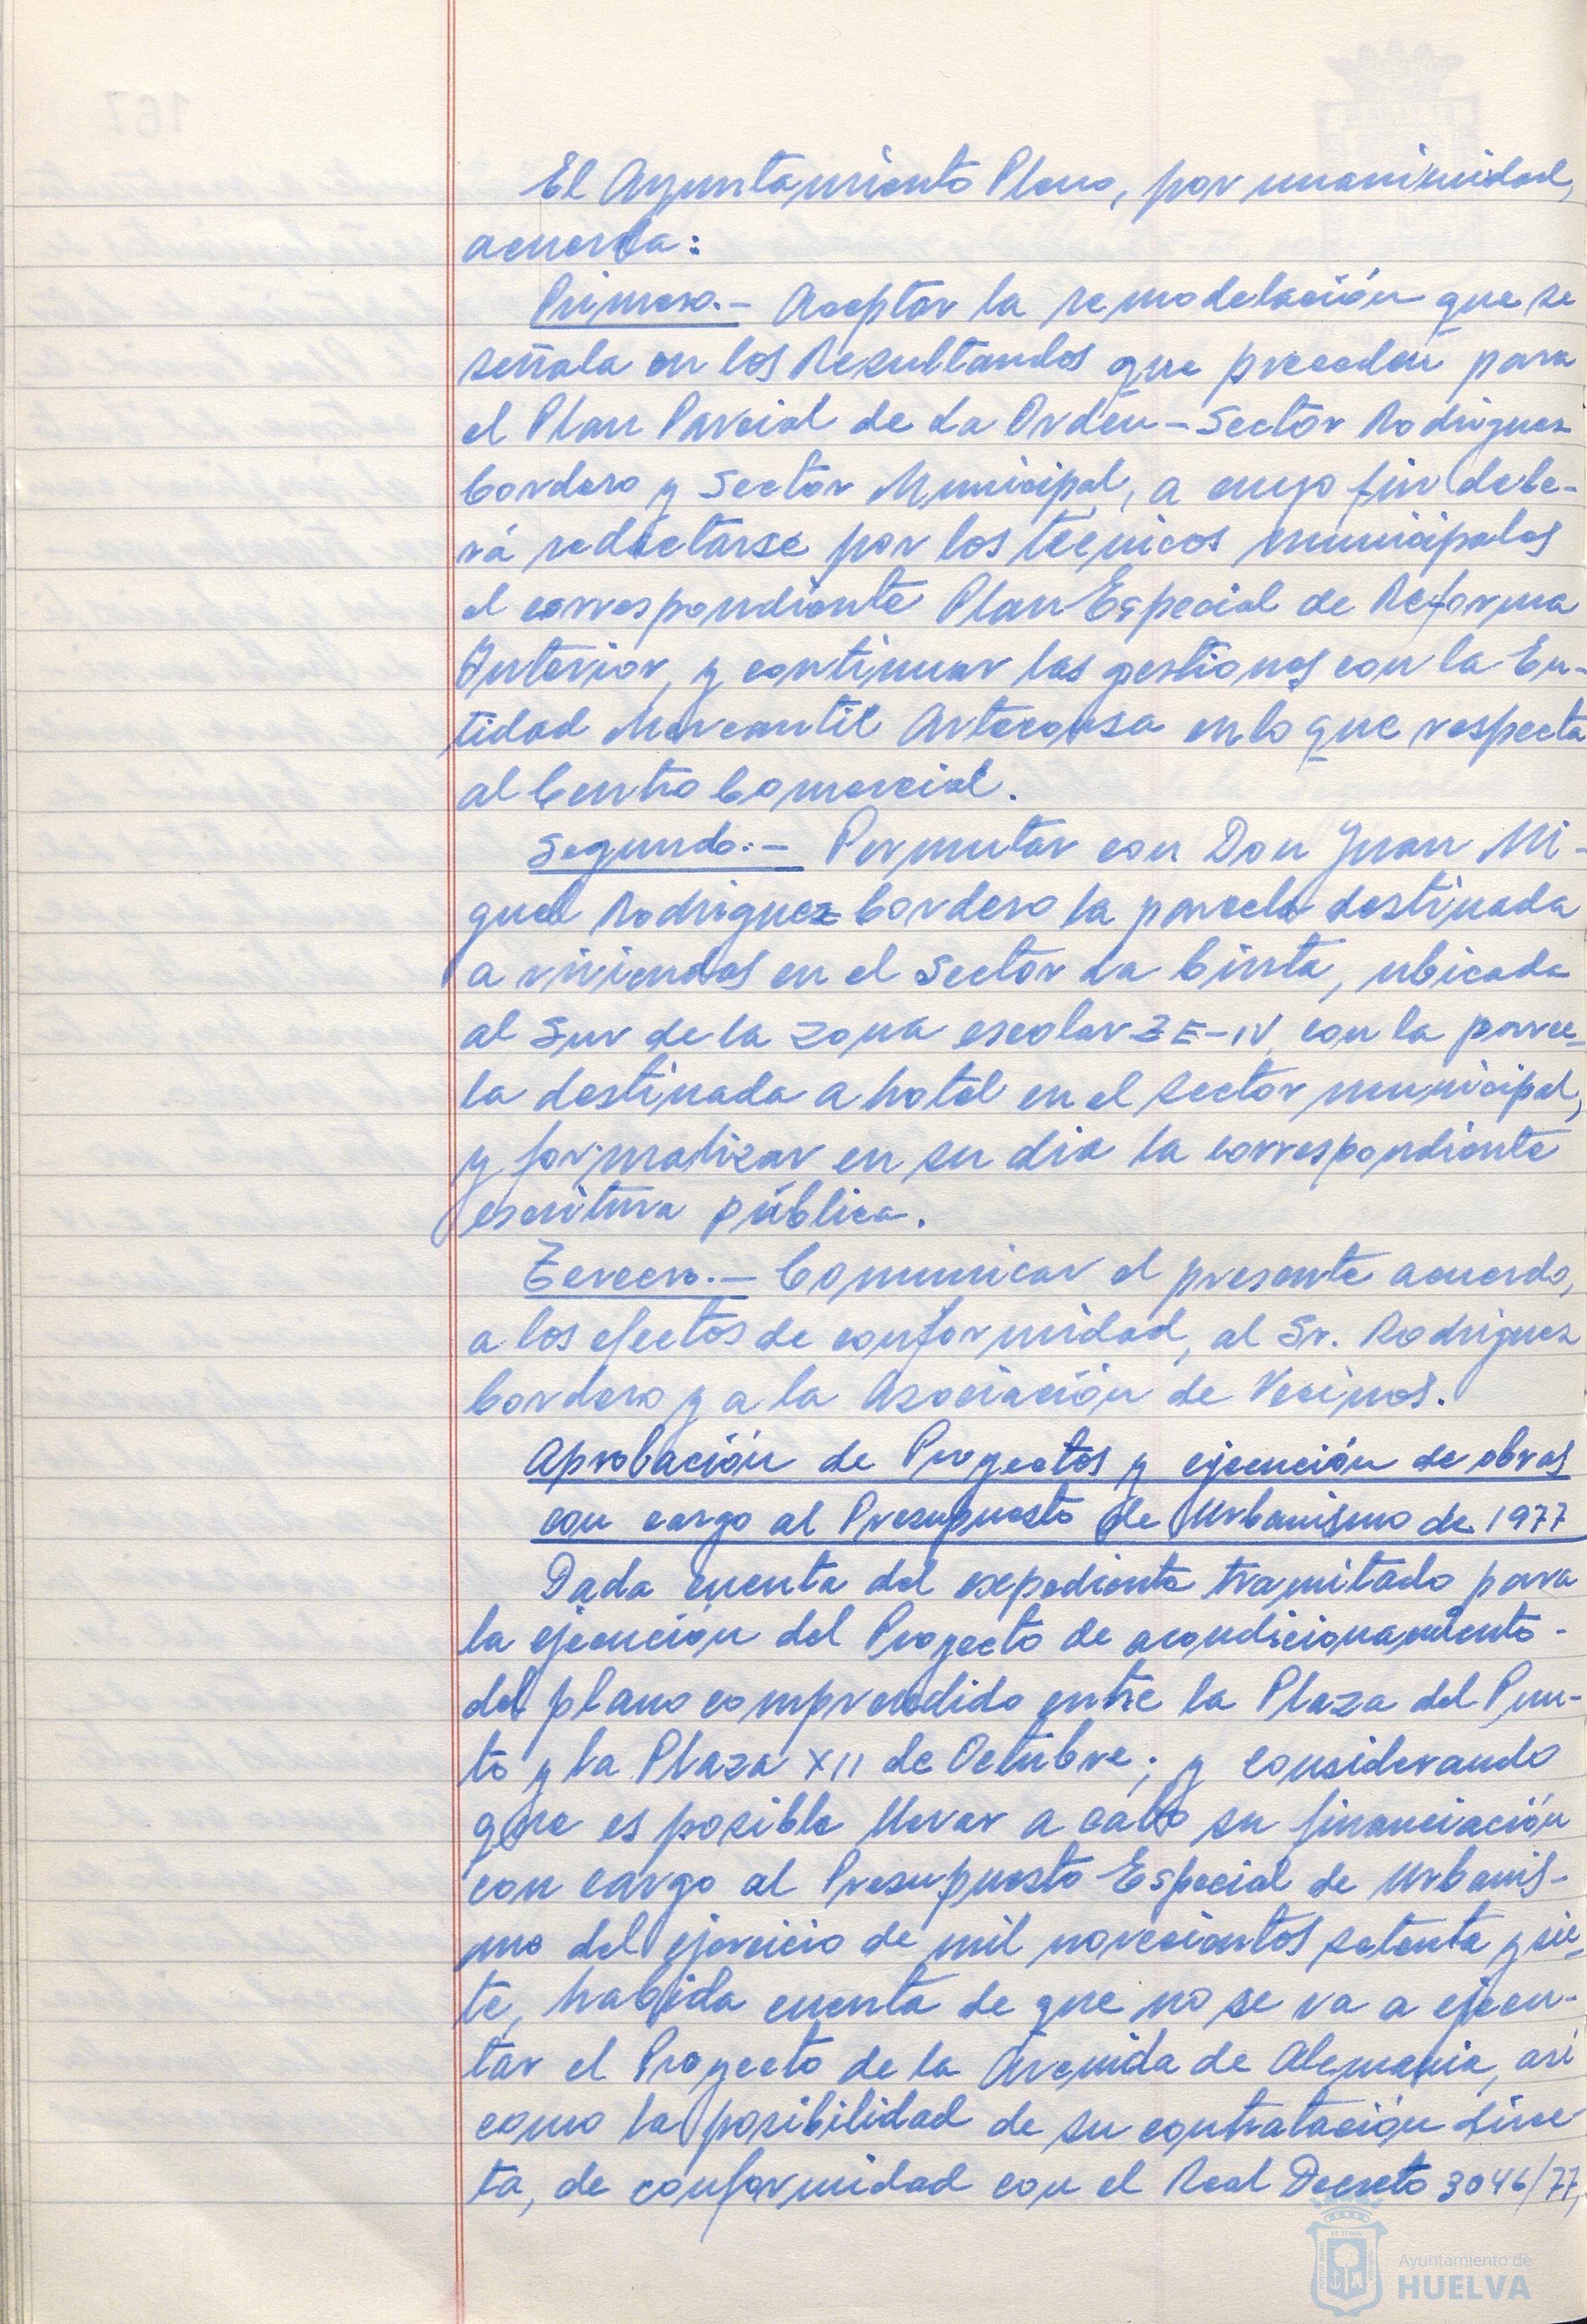 El Ayuntamiento Pleno, por unanimidad,
acuerda:
Primero.- Aceptar la remodelación que se
señala en los Resultandos que preceden para
el Plan Parcial de La Orden - Sector Rodriguez
Cordero y Sector Municipal, a cuyo fin debe-
rá redactarse por los técnicos municipales
el correspondiente Plan Especial de Reforma
Interior, y continuar las gestiones con la En-
tidad Mercantil en lo que respecta
al Centro Comercial.
Segundo.- Permutar con Don Juan Mi-
guel Rodriguez Cordero la parcela destinada
a viviendas en el Sector La Cinta, ubicada
al Sur de la zona escolar ZE-IV, con la parce-
la destinada a hotel en el sector municipal,
y formalizar en su dia la correspondiente
escritura pública.
Tercero.- Comunicar el presente acuerdo,
a los efectos de conformidad, al Sr. Rodriguez
Cordero y a la Asociación de Vecinos.
Aprobación de Proyectos y ejecución de obras
con cargo al Presupuesto de Urbanismo de 1977
Dada cuenta del expediente tramitado para
la ejecución del Proyecto de acondicionamiento -
del plano comprendido entre la Plaza del Pun-
to y la Plaza XII de Octubre; y considerando
que es posible llevar a cabo su financiación
con cargo al Presupuesto Especial de Urbanis-
mo del ejercicio de mil novecientos setenta y sie-
te, habida cuenta de que no se va a ejecu-
tar el Proyecto de la Avenida de Alemania, asi
como la posibilidad de su contratación direc-
ta, de conformidad con el Real Decreto 3046/77,
Ayuntamiento de
HUELVA